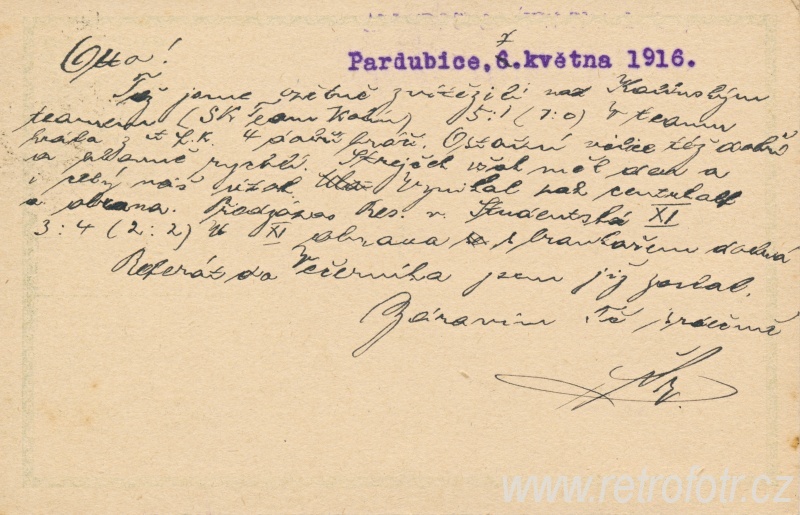 Pardubice, 7. května 1916.
Otto!
jsme zvítězili nad Kolínským
teamem (SK Team Kolín) 5:1 (1:0) V teamu
hráli z 4 dobří hráči. Ostatní velice též dobří
a rychlí. Strejček však měl den a
i celý náš útok. Vynikal náš centrhalf
a obrana. Předzápas Res. v. Studentská XI
3:4 (2:2) V XI obrana s brankářem
Referát do Večerníku jsem již poslal.
Zdravím Tě srdečně
www.retrofotr.cz